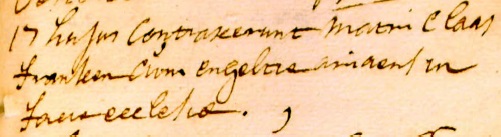 17 hujus Contraxerunt Matri Claas
franken Cum engeltie ariaens in
facie ecclesiæ.